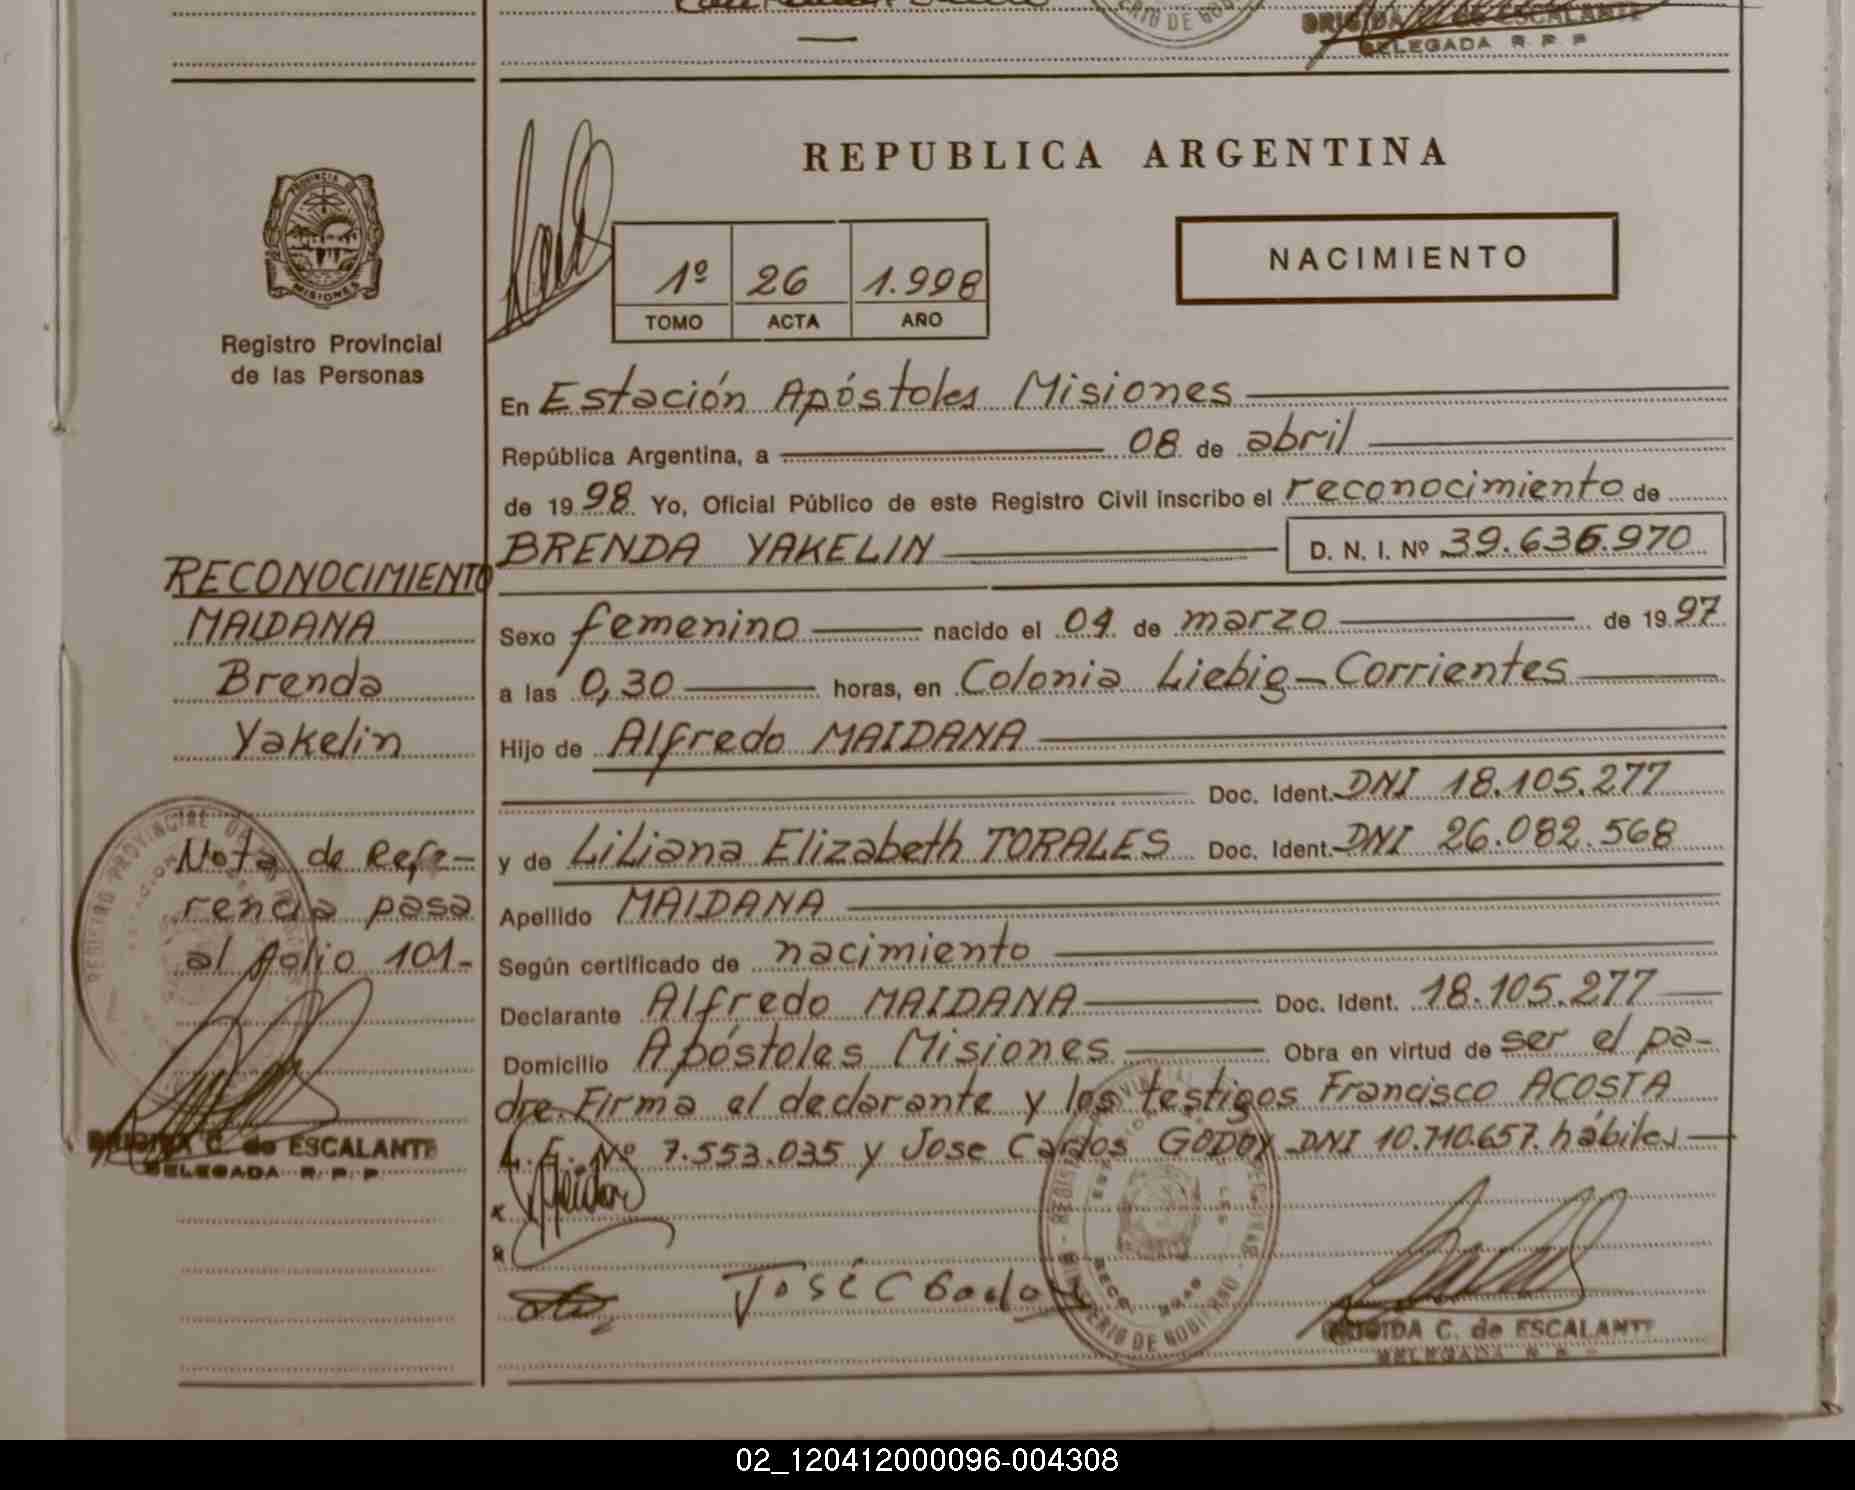 DE GOB
BRIGIDA C. DE ESCALANTE
DELEGADA R. P. P.
PROVINCIA DE
MISIONES
Registro Provincial
de las Personas
REPUBLICA ARGENTINA
1º 26 1.998
TOMO ACTA AÑO
NACIMIENTO
En Estación Apóstoles Misiones
República Argentina, a 08 de abril
de 1998 Yo, Oficial Público de este Registro Civil inscribo el reconocimiento de
BRENDA YAKELIN D. N. I. Nº 39.636.970
Sexo femenino nacido el 04 de marzo de 1997
a las 0,30 horas, en Colonia Liebig-Corrientes
Hijo de Alfredo MAIDANA
Doc. Ident. DNI 18.105.277
y de Liliana Elizabeth TORALES Doc. Ident. DNI 26.082.568
Apellido MAIDANA
Según certificado de nacimiento
Declarante Alfredo MAIDANA Doc. Ident. 18.105.277
Domicilio Apóstoles Misiones Obra en virtud de ser el pa-
dre. Firma el declarante y los testigos Francisco ACOSTA
L.E. Nº 7.553.035 y Jose Carlos GODOY DNI 10.710.657. hábiles
José C Godoy
MINISTERIO DE GOBIERNO
BRIGIDA C. de ESCALANTE
DELEGADA R. P.
RECONOCIMIENTO
MAIDANA
Brenda
Yakelin
Nota de Refe-
rencia pasa
al folio 101-
REGISTRO PROVINCIAL DE
BRIGIDA C. de ESCALANTE
DELEGADA R. P. P.
02_120412000096-004308